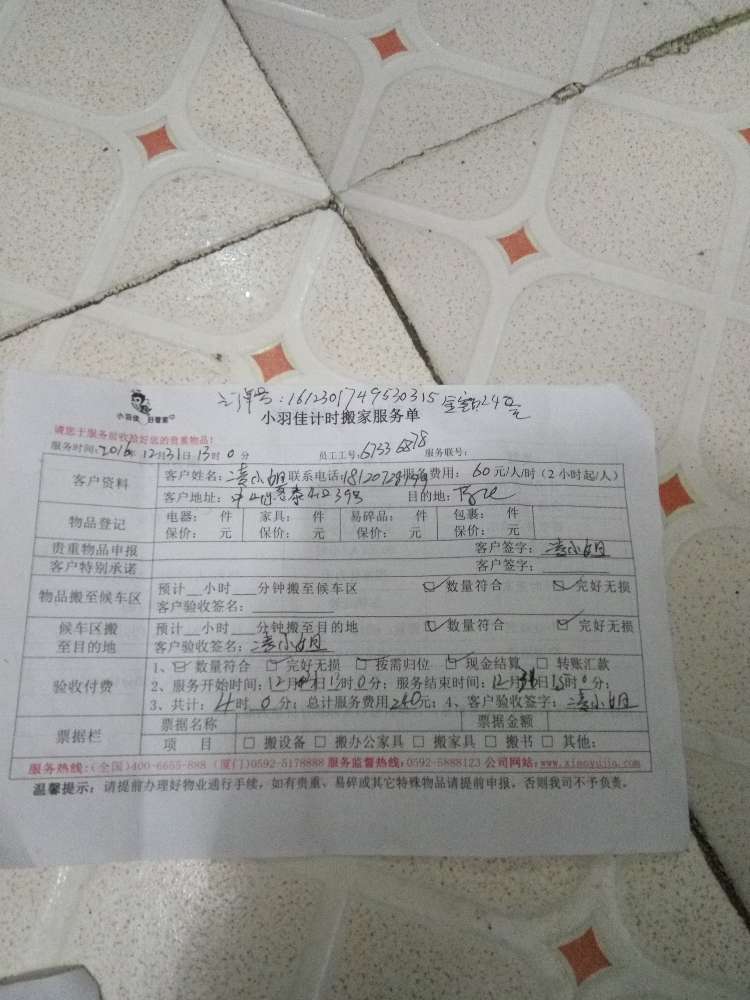 订单号:161230174953031 5 金额240元
小羽佳 好管家
小羽佳计时搬家服务单
请您于服务前收验好您的贵重物品!
服务时间:2016年12月31日13时0分 员工工号:6753 6878 服务联号:
客户资料 客户姓名:凌小姐 联系电话: 服务费用:60元/人/时(2小时起/人)
客户地址: 目的地:
物品登记 电器: 件 家具: 件 易碎品: 件 包裹: 件
保价: 元 保价: 元 保价: 元 保价: 元
贵重物品申报 客户签字:凌小姐
客户特别承诺 客户签字:
物品搬至候车区 预计__小时__分钟搬至候车区 数量符合 完好无损
客户验收签名:
候车区搬至目的地 预计__小时__分钟搬至目的地 数量符合 完好无损
客户验收签名:凌小姐
验收付费 1、数量符合 完好无损 按需归位 现金结算 转账汇款
2、服务开始时间:12月31日13时0分;服务结束时间:12月31日15时0分;
3、共计:4时0分;总计服务费用240元;4、客户验收签字:凌小姐
票据栏 票据名称 票据金额
项 目 搬设备 搬办公家具 搬家具 搬书 其他:
服务热线:(全国)400-6655-888 (厦门)0592-5178888 服务监督热线:0592-5888123 公司网站:www.xiaoyujia.com
温馨提示:请提前办理好物业通行手续,如有贵重、易碎或其它特殊物品请提前申报,否则我司不予负责。